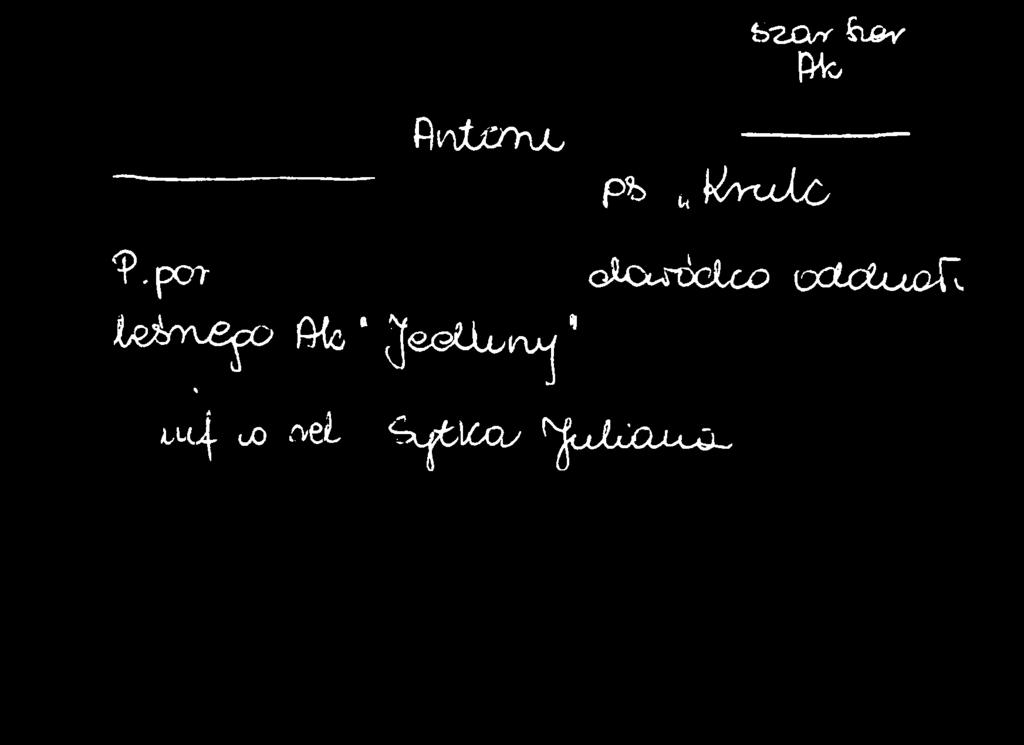 szar szer
AK
Antoni
ps „Krulc
P.por dowódca oddział.
leśnego AK "Jedliny"
inf w rel Sytka Juliana